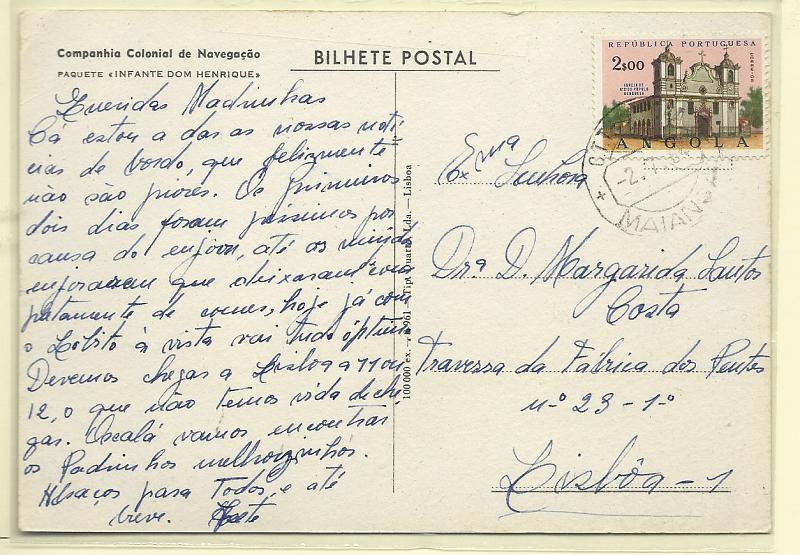 Companhia Colonial de Navegação
PAQUETE «INFANTE DOM HENRIQUE»
BILHETE POSTAL
Queridas Madrinhas
Cá estou a dar as nossas notí
cias de bordo, que felizmente
não são piores. Os primeiros
dois dias foram péssimos por
causa do enjoou, até os miúdos
enjoaram que deixaram com
pletamente de comer, hoje já com
o Lobito à vista vai tudo óptimo
Devemos chegar a Lisboa a 11 ou
12, o que não temos vida de che
gar. Oxalá vamos encontrar
os Padrinhos melhorzinhos.
Abraços para Todos, e até
breve.
100 000 ex. - 1961 - Tip. Duarte, Lda. — Lisboa
REPÚBLICA PORTUGUESA
2$00
IGREJA DE
BENGUELA
ANGOLA
MAIANGA
Exma Senhora
Dra D. Margarida Santos
Costa
Travessa da Fábrica dos Pentes
nº 23 - 1º
Lisbôa - 1